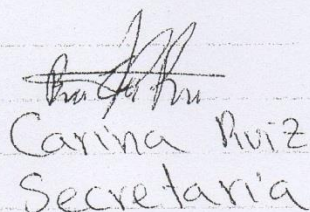 Carina Ruiz
Secretaria